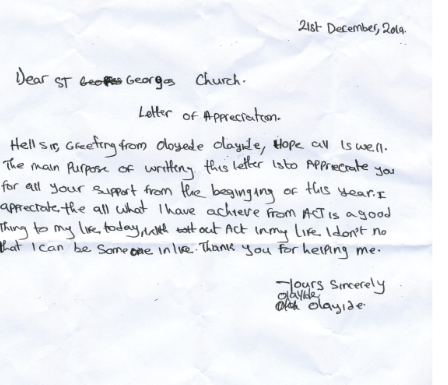 21st December, 2019.
Dear ST Georges Church.
Letter of Appreciation.
Hello sir, Greeting from oloyede olayide, Hope all is well.
The main Purpose of writting this letter is to Appreciate you
for all your support from the begining of this year. I
appreciate the all what I have achieve from ACT is a good
thing to my live, today, with out Act in my life. I don't no
that I can be Someone in live. Thank you for helping me.
Yours Sincerely
Olayide
Olayide.